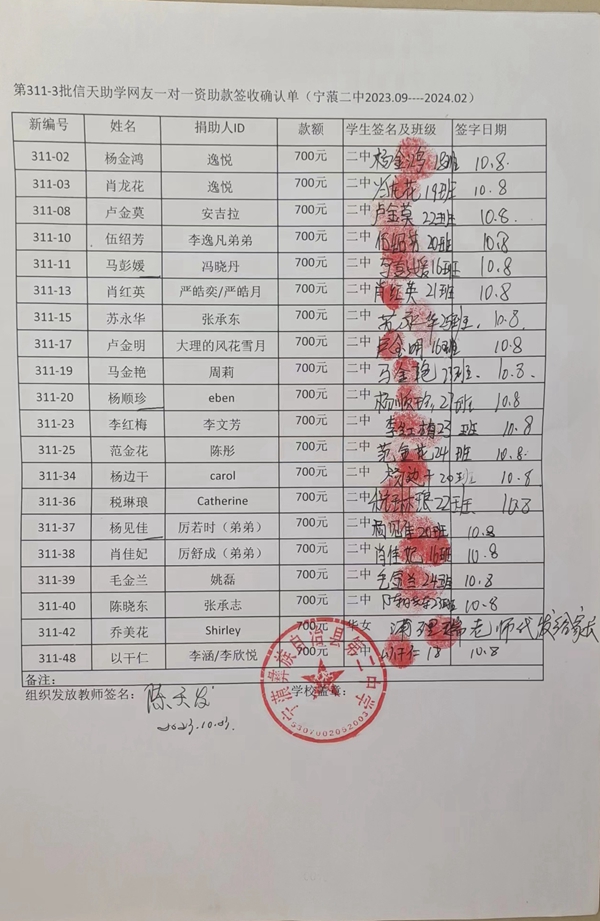 第311-3批信天助学网友一对一资助款签收确认单（宁蒗二中2023.09----2024.02）
新编号 姓名 捐助人ID 款额 学生签名及班级 签字日期
311-02 杨金鸿 逸悦 700元 二中 杨金鸿 18班 10.8.
311-03 肖龙花 逸悦 700元 二中 肖龙花 19班 10.8
311-08 卢金莫 安吉拉 700元 二中 卢金莫 22班 10.8.
311-10 伍绍芳 李逸凡弟弟 700元 二中 伍绍芳 20班 10.8
311-11 马彭媛 冯晓丹 700元 二中 马彭媛 16班 10.8
311-13 肖红英 严皓奕/严皓月 700元 二中 肖红英 21班 10.8
311-15 苏永华 张承东 700元 二中 苏永华 10.8.
311-17 卢金明 大理的风花雪月 700元 二中 卢金明 16班 10.8
311-19 马金艳 周莉 700元 二中 马金艳 10.8.
311-20 杨顺珍 eben 700元 二中 杨顺珍 10.8
311-23 李红梅 李文芳 700元 二中 李红梅 23班 10.8
311-25 范金花 陈彤 700元 二中 范金花 24班 10.8.
311-34 杨边干 carol 700元 二中 杨边干 20班 10.8
311-36 税琳琅 Catherine 700元 二中 税琳琅 22班 10.8
311-37 杨见佳 厉若时（弟弟） 700元 二中 杨见佳 20班 10.8
311-38 肖佳妃 厉舒成（弟弟） 700元 二中 肖佳妃 16班 10.8
311-39 毛金兰 姚磊 700元 二中 毛金兰 24班 10.8
311-40 陈晓东 张承志 700元 二中 陈晓东 10.8
311-42 乔美花 Shirley 700元 华女 老师代发给家长
311-48 以干仁 李涵/李欣悦 700元 二中 以干仁 18 10.8
备注：
组织发放教师签名： 学校盖章：
2023.10.
5307002052003